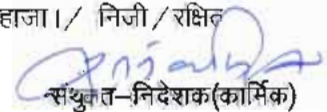 हाजा।/ निजी/रक्षित
संयुक्त–निदेशक(कार्मिक)